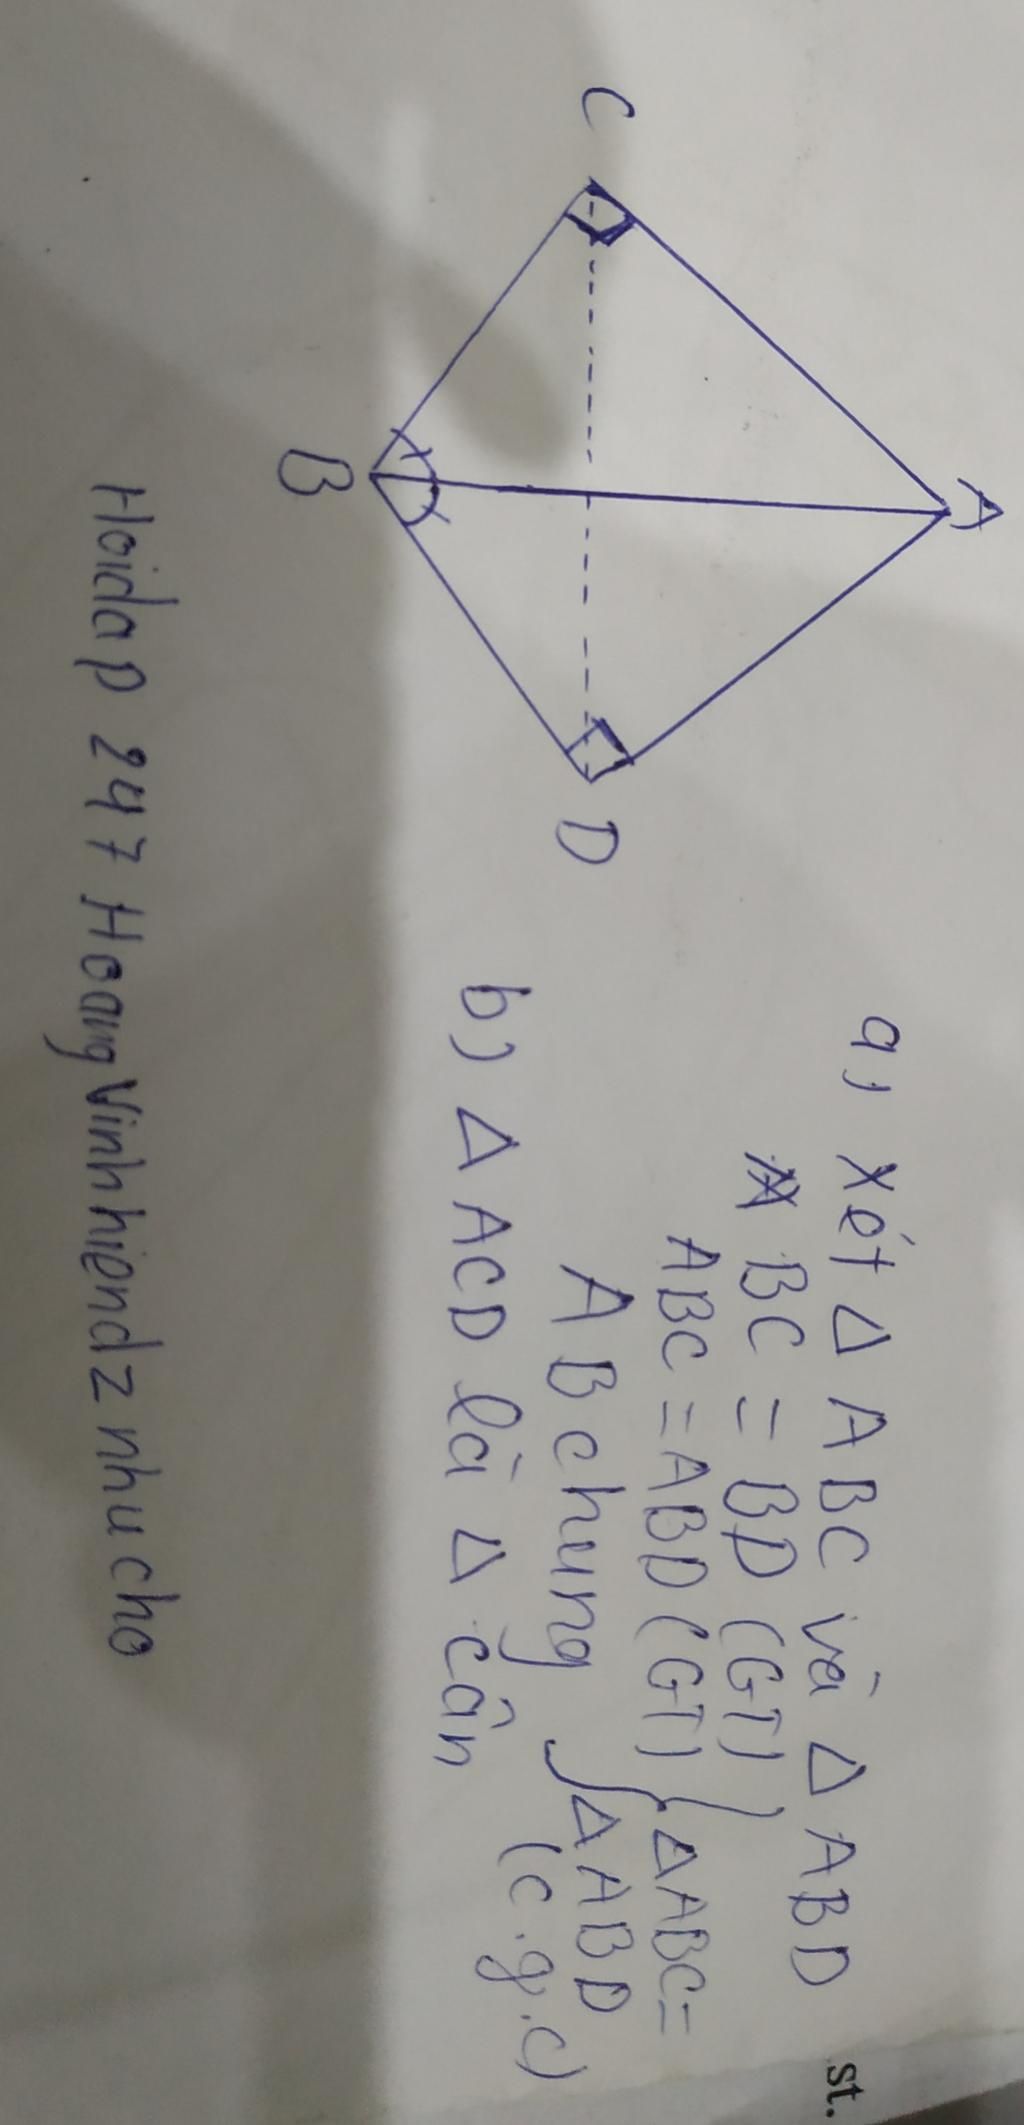 A
C
D
B
a) Xét Δ ABC và Δ ABD
BC = BD (GT)
ABC = ABD (GT)
AB chung
ΔABC =
ΔABD
(c.g.c)
b) Δ ACD là Δ cân
Hoidap 247 Hoang Vinhhiendz nhu cho
st.